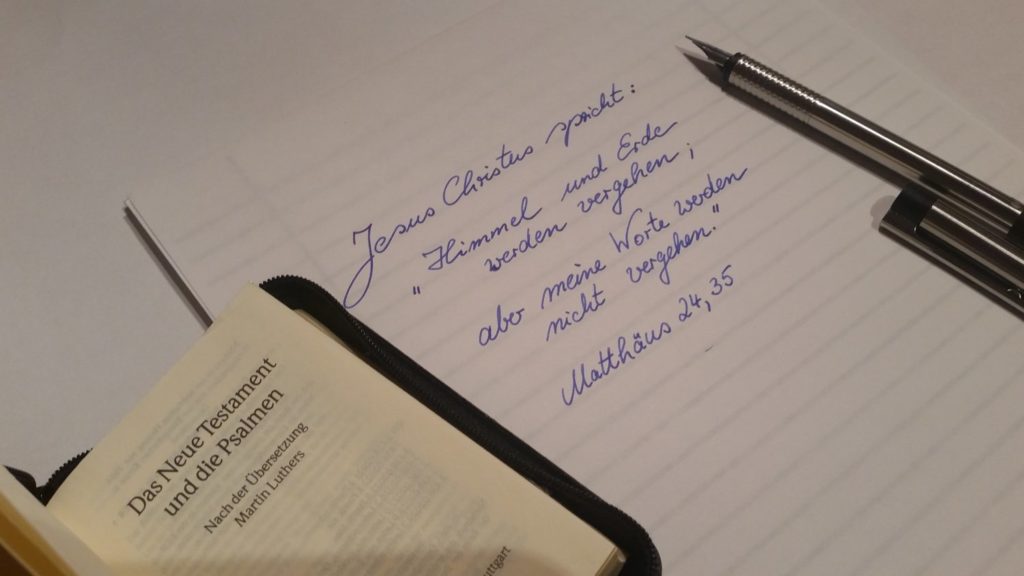 Jesus Christus spricht:
"Himmel und Erde
werden vergehen;
aber meine Worte werden
nicht vergehen."
Matthäus 24,35
Das Neue Testament
und die Psalmen
Nach der Übersetzung
Martin Luthers